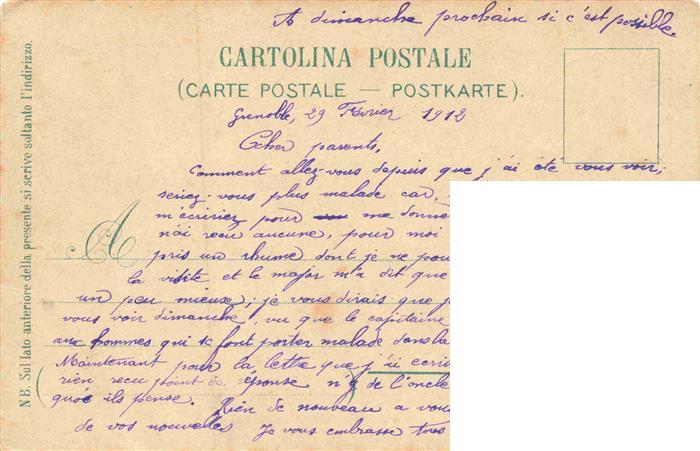 A dimanche prochain si c'est possible.
CARTOLINA POSTALE
(CARTE POSTALE — POSTKARTE).
Grenoble, 29 Février 1912
Cher parents,
Comment allez-vous depuis que j'ai été vous voir;
seriez-vous plus malade car
m'écrisiez pour me donne
n'ai reçu aucune, pour moi
pris un rhume dont je ne
A
la visite et le major m'a dit que
un peu mieux; je vous dirais que
vous voir dimanche, vu que le capitaine
aux hommes qui se font porter malade dans la
Maintenant pour la lettre que j'ai ecris
rien recu point de réponse de l'oncle
quoi ils pense. Rien de nouveau a vous
de vos nouvelles Je vous embrasse tous
NB. Sul lato anteriore della presente si scrive soltanto l'indirizzo.